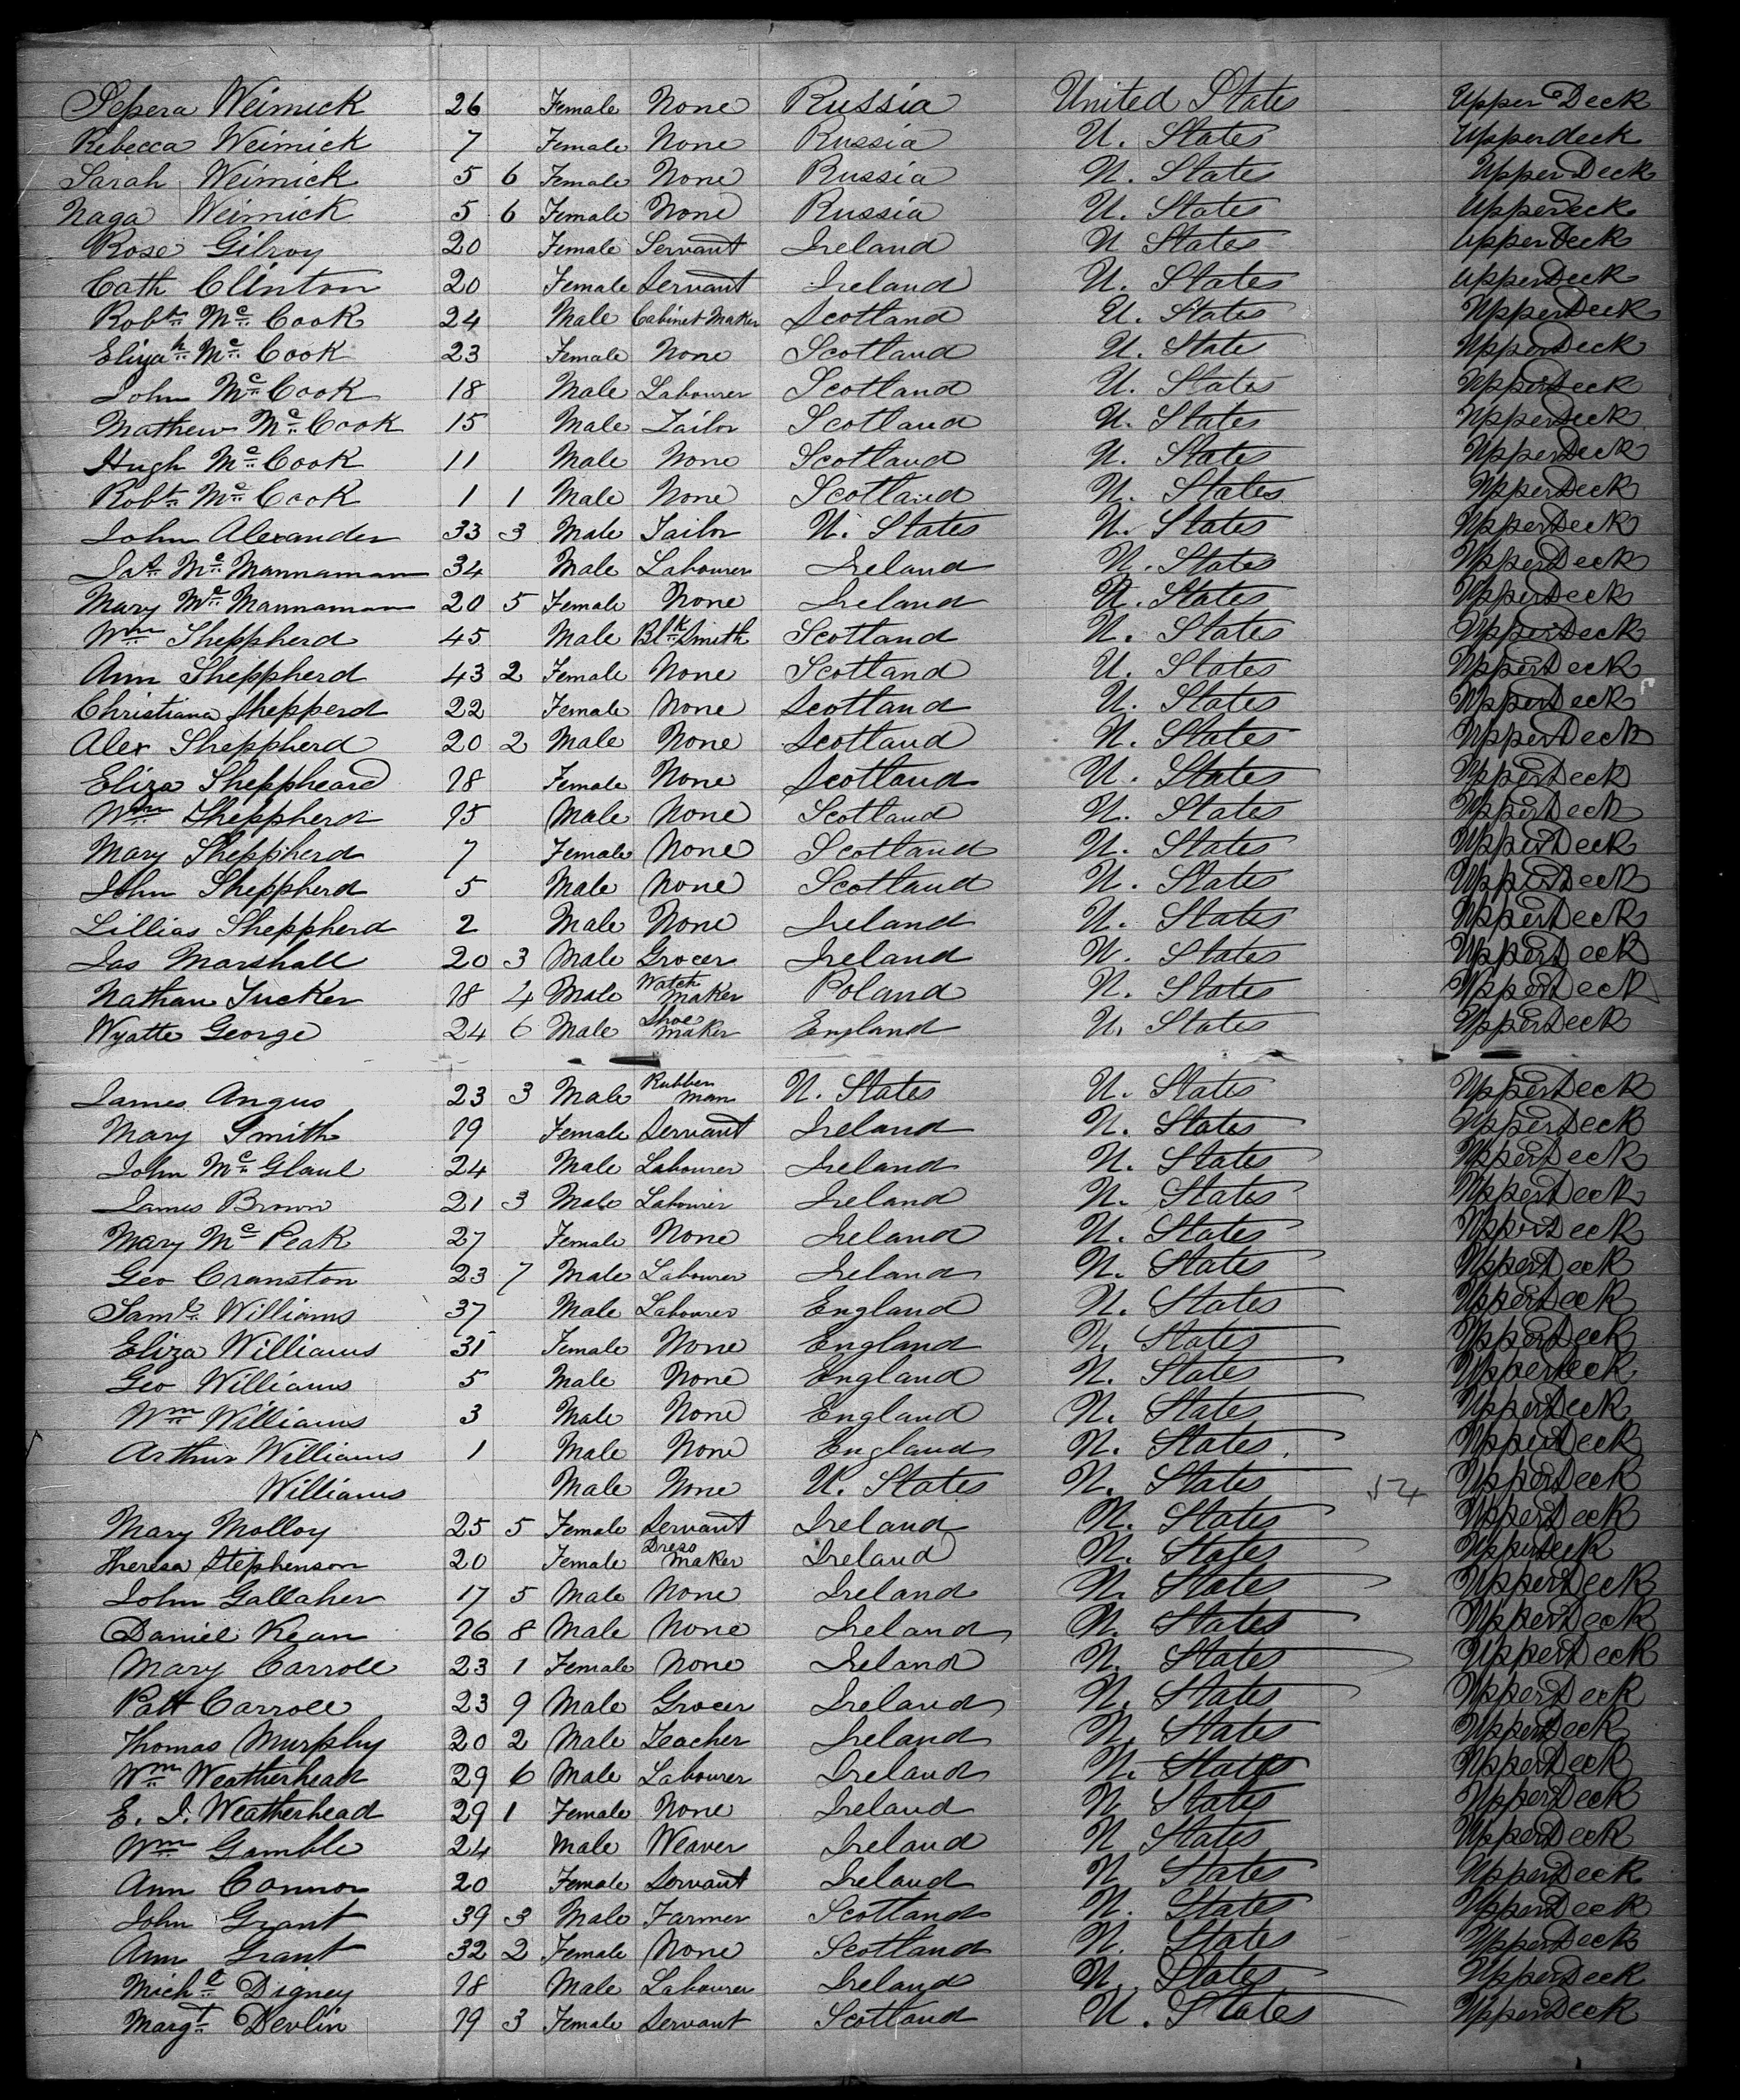 Sepera Weinick 26 Female None Russia United States Upper Deck
Rebecca Weinick 7 Female None Russia U. States Upperdeck
Sarah Weinick 5 6 Female None Russia U. States Upper Deck
Naga Weinick 5 6 Female None Russia U. States Upperdeck
Rose Gilroy 20 Female Servant Ireland U States Upper Deck
Cath Clinton 20 Female Servant Ireland U. States Upper Deck
Robt Mc Cook 24 Male Cabinet Maker Scotland U. States Upper Deck
Elizah Mc Cook 23 Female None Scotland U. State Upper Deck
John Mc Cook 18 Male Labourer Scotland U. States Upper Deck
Mathew Mc Cook 15 Male Tailor Scotland U. States Upper Deck
Hugh Mc Cook 11 Male None Scotland U. States Upper Deck
Robt Mc Cook 1 1 Male None Scotland U. States Upper Deck
John Alexander 33 3 Male Tailor U. States U. States Upper Deck
Jas Mc Mannaman 34 Male Labourer Ireland U. States Upper Deck
Mary Mc Mannaman 20 5 Female None Ireland U. States Upper Deck
Wm Sheppherd 45 Male Blk Smith Scotland U. States Upper Deck
Ann Sheppherd 43 2 Female None Scotland U. States Upper Deck
Christiana Shepperd 22 Female None Scotland U. States Upper Deck
Alex Sheppherd 20 2 Male None Scotland U. States Upper Deck
Eliza Sheppheard 18 Female None Scotland U. States Upper Deck
Wm Sheppherd 15 Male None Scotland U. States Upper Deck
Mary Sheppherd 7 Female None Scotland U. States Upper Deck
John Sheppherd 5 Male None Scotland U. States Upper Deck
Lillias Sheppherd 2 Male None Ireland U. States Upper Deck
Jas Marshall 20 3 Male Grocer Ireland U. States Upper Deck
Nathan Tucker 18 4 Male Watch Maker Poland U. States Upper Deck
Wyatte George 24 6 Male Shoe Maker England U. States Upper Deck
James Angus 23 3 Male Rubber Man U. States U. States Upper Deck
Mary Smith 19 Female Servant Ireland U. States Upper Deck
John Mc Glaul 24 Male Labourer Ireland U. States Upper Deck
James Brown 21 3 Male Labourer Ireland U. States Upper Deck
Mary Mc Peak 27 Female None Ireland U. States Upper Deck
Geo Cranston 23 7 Male Labourer Ireland U. States Upper Deck
Saml Williams 37 Male Labourer England U. States Upper Deck
Eliza Williams 31 Female None England U. States Upper Deck
Geo Williams 5 Male None England U. States Upperdeck
Wm Williams 3 Male None England U. States Upper Deck
Arthur Williams 1 Male None England U. States Upper Deck
Williams Male None U. States U. States 54 Upper Deck
Mary Molloy 25 5 Female Servant Ireland U. States Upper Deck
Theresa Stephenson 20 Female Dress Maker Ireland U. States Upper Deck
John Gallaher 17 5 Male None Ireland U. States Upper Deck
Daniel Kean 26 8 Male None Ireland U. States Upper Deck
Mary Carroll 23 1 Female None Ireland U. States Upper Deck
Patt Carroll 23 9 Male Grocer Ireland U. States Upper Deck
Thomas Murphy 20 2 Male Teacher Ireland U. States Upper Deck
Wm Weatherhead 29 6 Male Labourer Ireland U. States Upper Deck
E. J. Weatherhead 29 1 Female None Ireland U States Upper Deck
Wm Gamble 24 Male Weaver Ireland U States Upper Deck
Ann Connor 20 Female Servant Ireland U States Upper Deck
John Grant 39 3 Male Farmer Scotland U. States Upper Deck
Ann Grant 32 2 Female None Scotland U. States Upper Deck
Michl Digney 18 Male Labourer Ireland U. States Upper Deck
Margt Devlin 19 3 Female Servant Scotland U. States Upper Deck